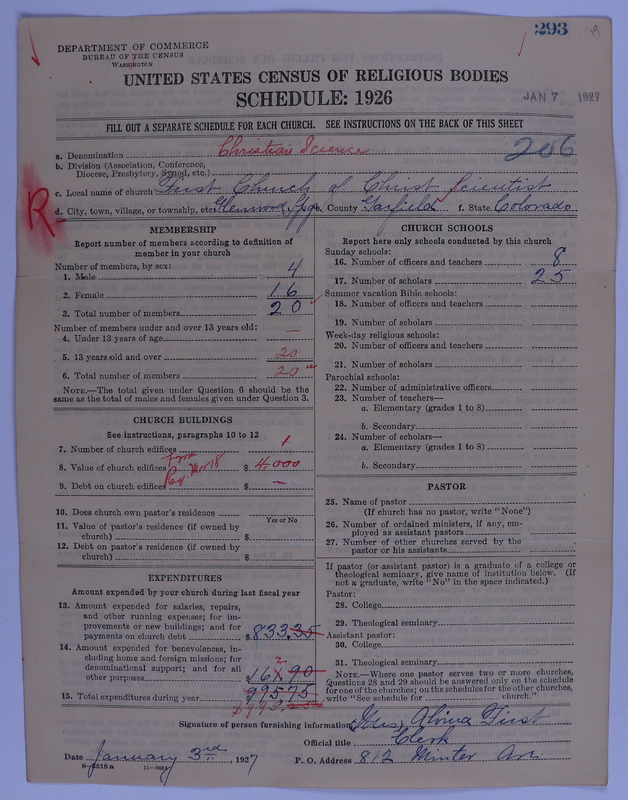 293
DEPARTMENT OF COMMERCE
BUREAU OF THE CENSUS
WASHINGTON
UNITED STATES CENSUS OF RELIGIOUS BODIES
SCHEDULE: 1926
JAN 7 1927
FILL OUT A SEPARATE SCHEDULE FOR EACH CHURCH. SEE INSTRUCTIONS ON THE BACK OF THIS SHEET
a. Denomination Christian Science 206
b. Division (Association, Conference, Diocese, Presbytery, Synod, etc.)
c. Local name of church First Church of Christ Scientist
R
d. City, town, village, or township, etc. Glenwood Spgs. County Garfield f. State Colorado
MEMBERSHIP
Report number of members according to definition of member in your church
Number of members, by sex:
1. Male 4
2. Female 16
3. Total number of members 20
Number of members under and over 13 years old:
4. Under 13 years of age —
5. 13 years old and over 20
6. Total number of members 20
NOTE.—The total given under Question 6 should be the same as the total of males and females given under Question 3.
CHURCH BUILDINGS
See instructions, paragraphs 10 to 12
7. Number of church edifices 1
8. Value of church edifices $ 4000
9. Debt on church edifices $ —
10. Does church own pastor's residence
Yes or No
11. Value of pastor's residence (if owned by church) $
12. Debt on pastor's residence (if owned by church) $
EXPENDITURES
Amount expended by your church during last fiscal year
13. Amount expended for salaries, repairs, and other running expenses; for improvements or new buildings; and for payments on church debt $ 833.35
14. Amount expended for benevolences, including home and foreign missions; for denominational support; and for all other purposes $
15. Total expenditures during year
CHURCH SCHOOLS
Report here only schools conducted by this church
Sunday schools:
16. Number of officers and teachers 8
17. Number of scholars 25
Summer vacation Bible schools:
18. Number of officers and teachers
19. Number of scholars
Week-day religious schools:
20. Number of officers and teachers
21. Number of scholars
Parochial schools:
22. Number of administrative officers
23. Number of teachers—
a. Elementary (grades 1 to 8)
b. Secondary
24. Number of scholars—
a. Elementary (grades 1 to 8)
b. Secondary
PASTOR
25. Name of pastor
(If church has no pastor, write "None")
26. Number of ordained ministers, if any, employed as assistant pastors
27. Number of other churches served by the pastor or his assistants
If pastor (or assistant pastor) is a graduate of a college or theological seminary, give name of institution below. (If not a graduate, write "No" in the space indicated.)
Pastor:
28. College
29. Theological seminary
Assistant pastor:
30. College
31. Theological seminary
NOTE.—Where one pastor serves two or more churches, Questions 28 and 29 should be answered only on the schedule for one of the churches; on the schedules for the other churches, write "See schedule for church."
Signature of person furnishing information Mrs.
Official title Clerk
Date January 3rd, 1927 P. O. Address 812 Ave